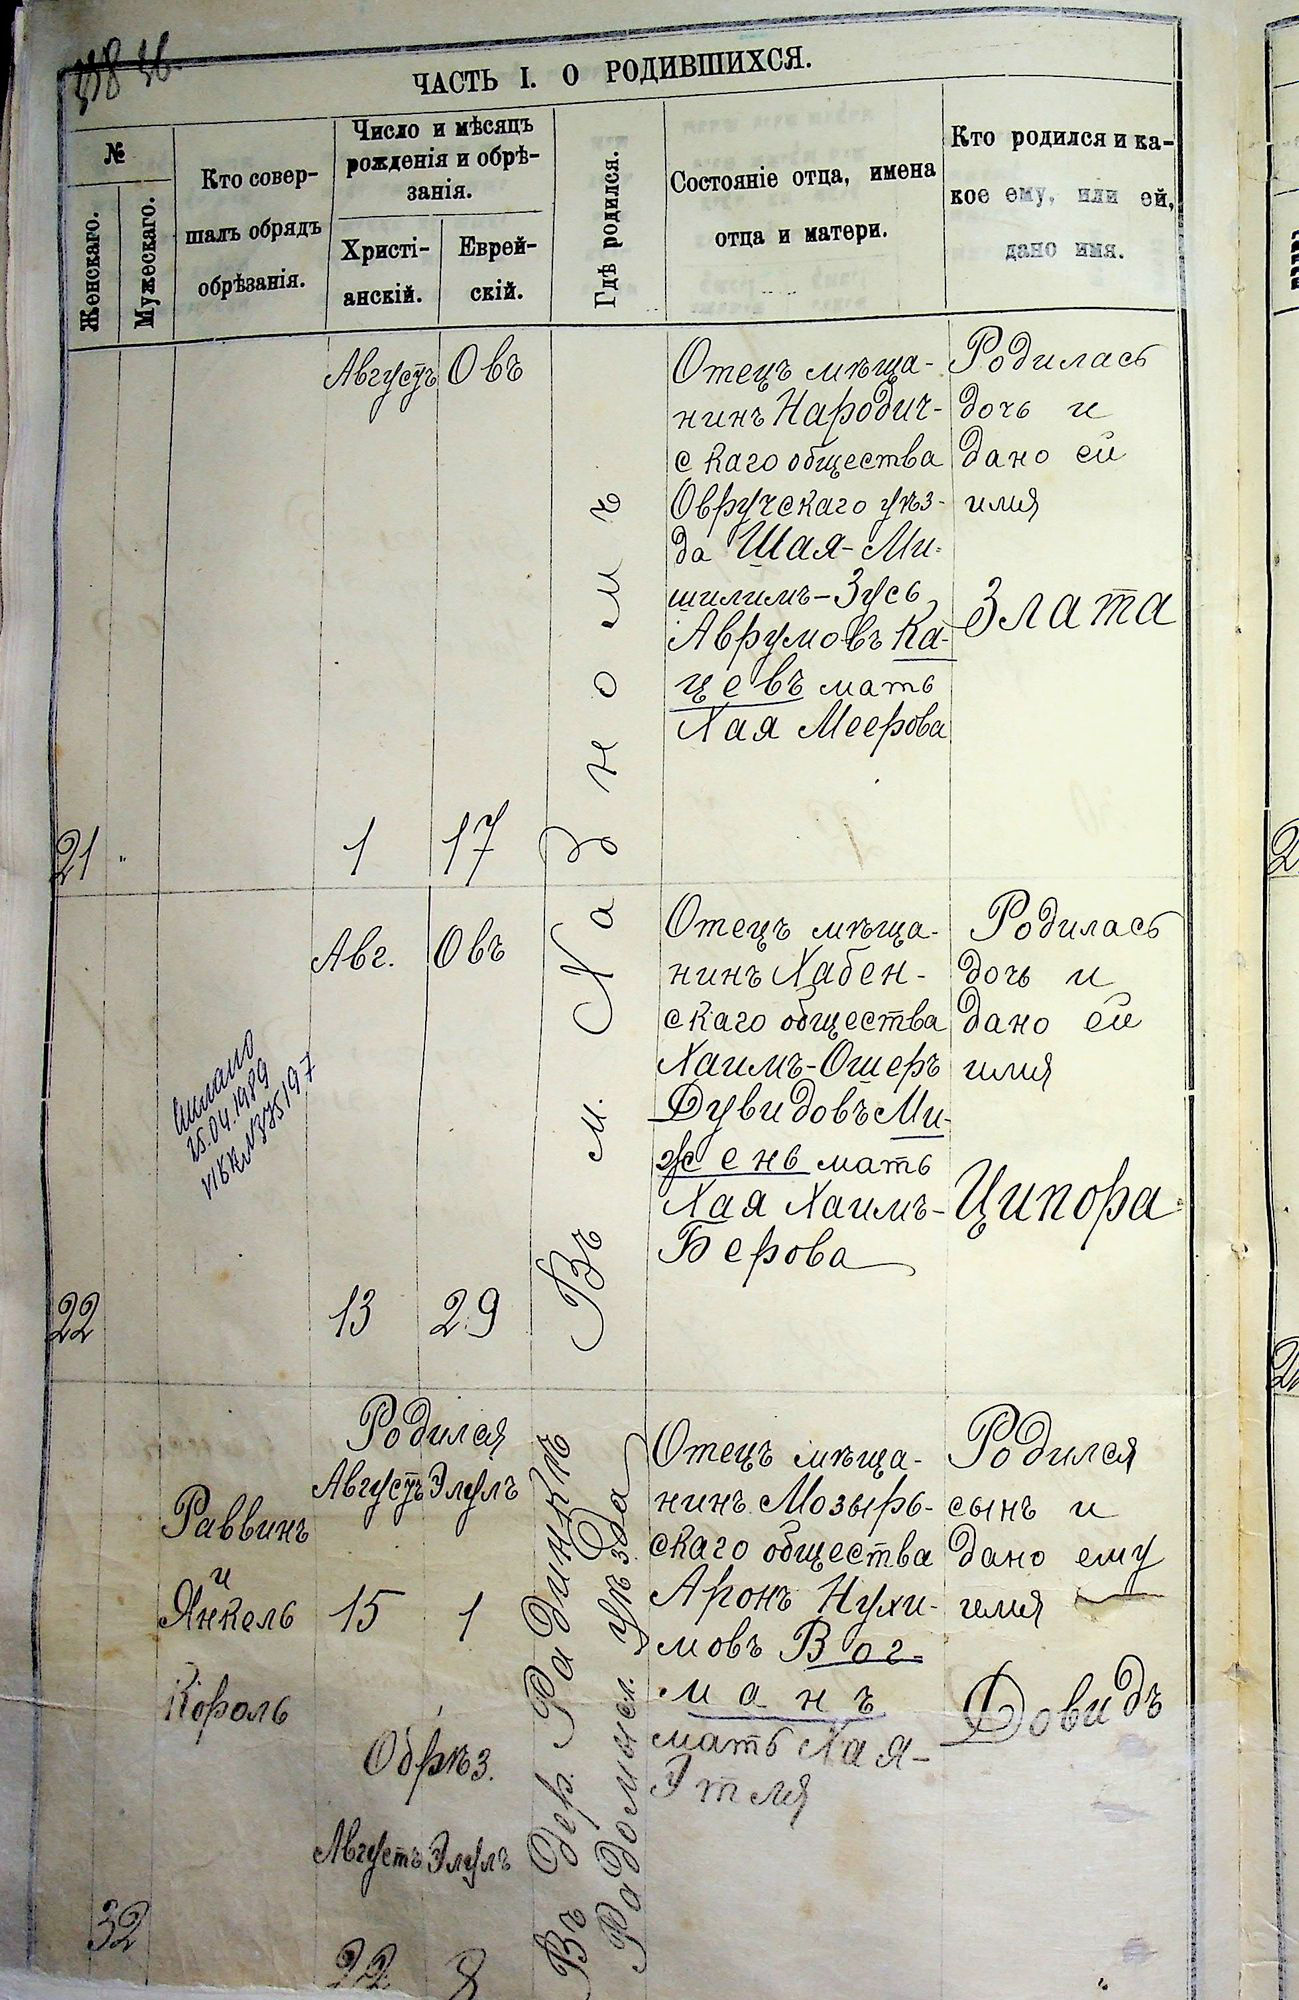 36.
ЧАСТЬ I. О РОДИВШИХСЯ.
№
Женскаго.
Мужескаго.
Кто совер-
шалъ обрядъ
обрѣзанія.
Число и мѣсяцъ
рожденія и обрѣ-
занія.
Христі-
анскій.
Еврей-
скій.
Гдѣ родился.
Состояніе отца, имена
отца и матери.
Кто родился и ка-
кое ему, или ей,
дано имя.
21
Августъ
1
Овъ
17
Въ м. Хазномъ
Отецъ мѣща-
нинъ Народич-
скаго общества
Овручскаго уѣз-
да Шая-Ми-
шилимъ-Зусь
Аврумовъ Ка-
цевъ мать
Хая Меерова
Родилась
дочь и
дано ей
имя
Злата
22
25.04.1989
Авг.
13
Овъ
29
Отецъ мѣща-
нинъ Хабен-
скаго общества
Хаимъ-Ошеръ
Дувидовъ Ми-
жень мать
Хая Хаимъ-
Берова
Родилась
дочь и
дано ей
имя
Ципора
32
Раввинъ
и
Янкель
Король
Родился
Августъ Элулъ
15 1
Обрѣз.
Августъ Элулъ
22 8
Въ дер. Радинкѣ
Радомысл. уѣзда
Отецъ мѣща-
нинъ Мозырь-
скаго общества
Аронъ Нухи-
мовъ Вог-
манъ
мать Хая-
Этля
Родился
сынъ и
дано ему
имя
Довидъ